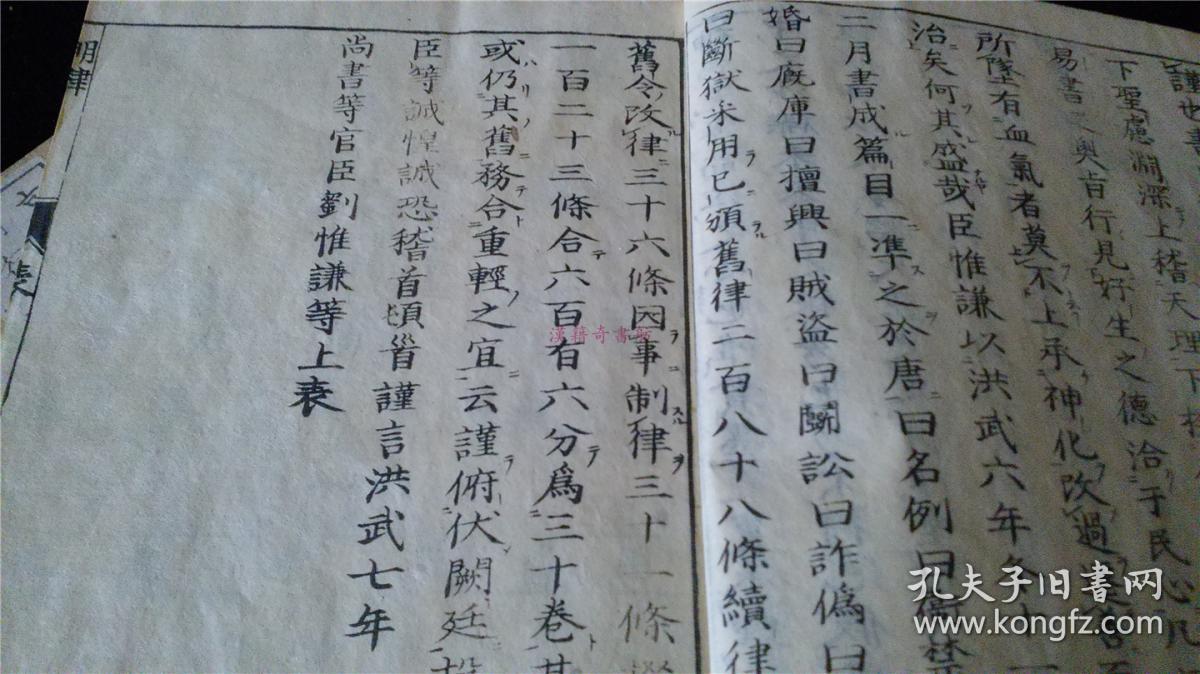 下聖慮淵深上稽天理下
易書之奧旨行見好生之德洽于民心凡
所墜有血氣者莫不上承神化改過
治矣何其盛哉臣惟謙以洪武六年冬十一
二月書成篇目一準之於唐曰名例曰衞禁
婚曰厩庫曰擅興曰賊盜曰鬪訟曰詐僞曰
曰斷獄采用已頒舊律二百八十八條續律
舊令改律三十六條因事制律三十一條
一百二十三條合六百有六分爲三十卷其
或仍其舊務合重輕之宜云謹俯伏闕廷
臣等誠惶誠恐稽首頓首謹言洪武七年
尚書等官臣劉惟謙等上表
明律
表
漢籍奇書
孔夫子旧书网
www.kongfz.com